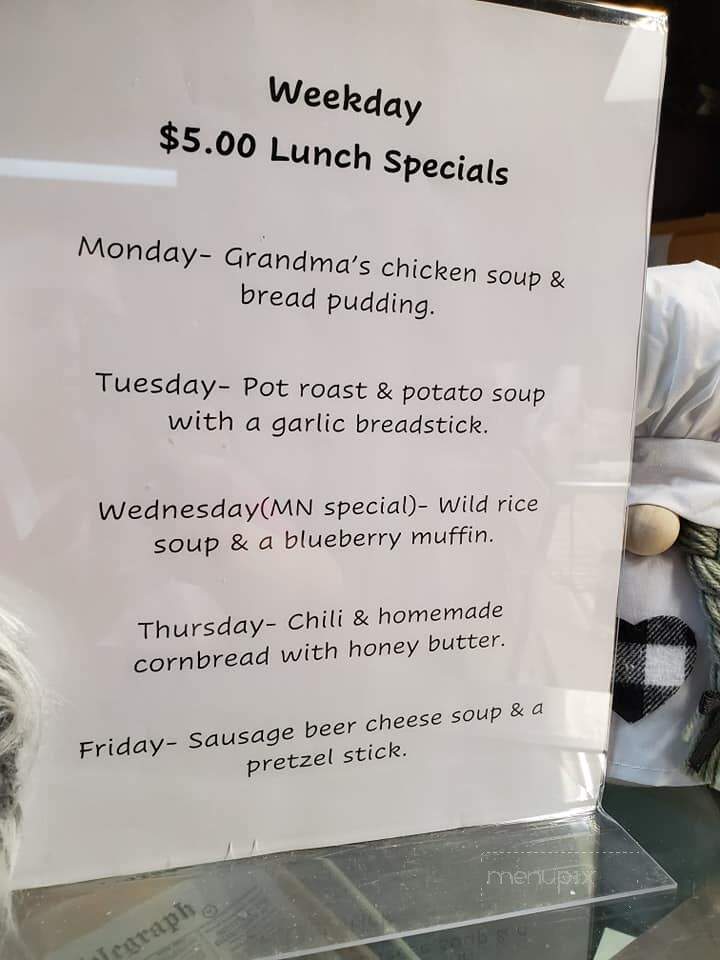 Weekday
$5.00 Lunch Specials
Monday- Grandma's chicken soup &
bread pudding.
Tuesday- Pot roast & potato soup
with a garlic breadstick.
Wednesday(MN special)- Wild rice
soup & a blueberry muffin.
Thursday- Chili & homemade
cornbread with honey butter.
Friday- Sausage beer cheese soup & a
pretzel stick.
menupix